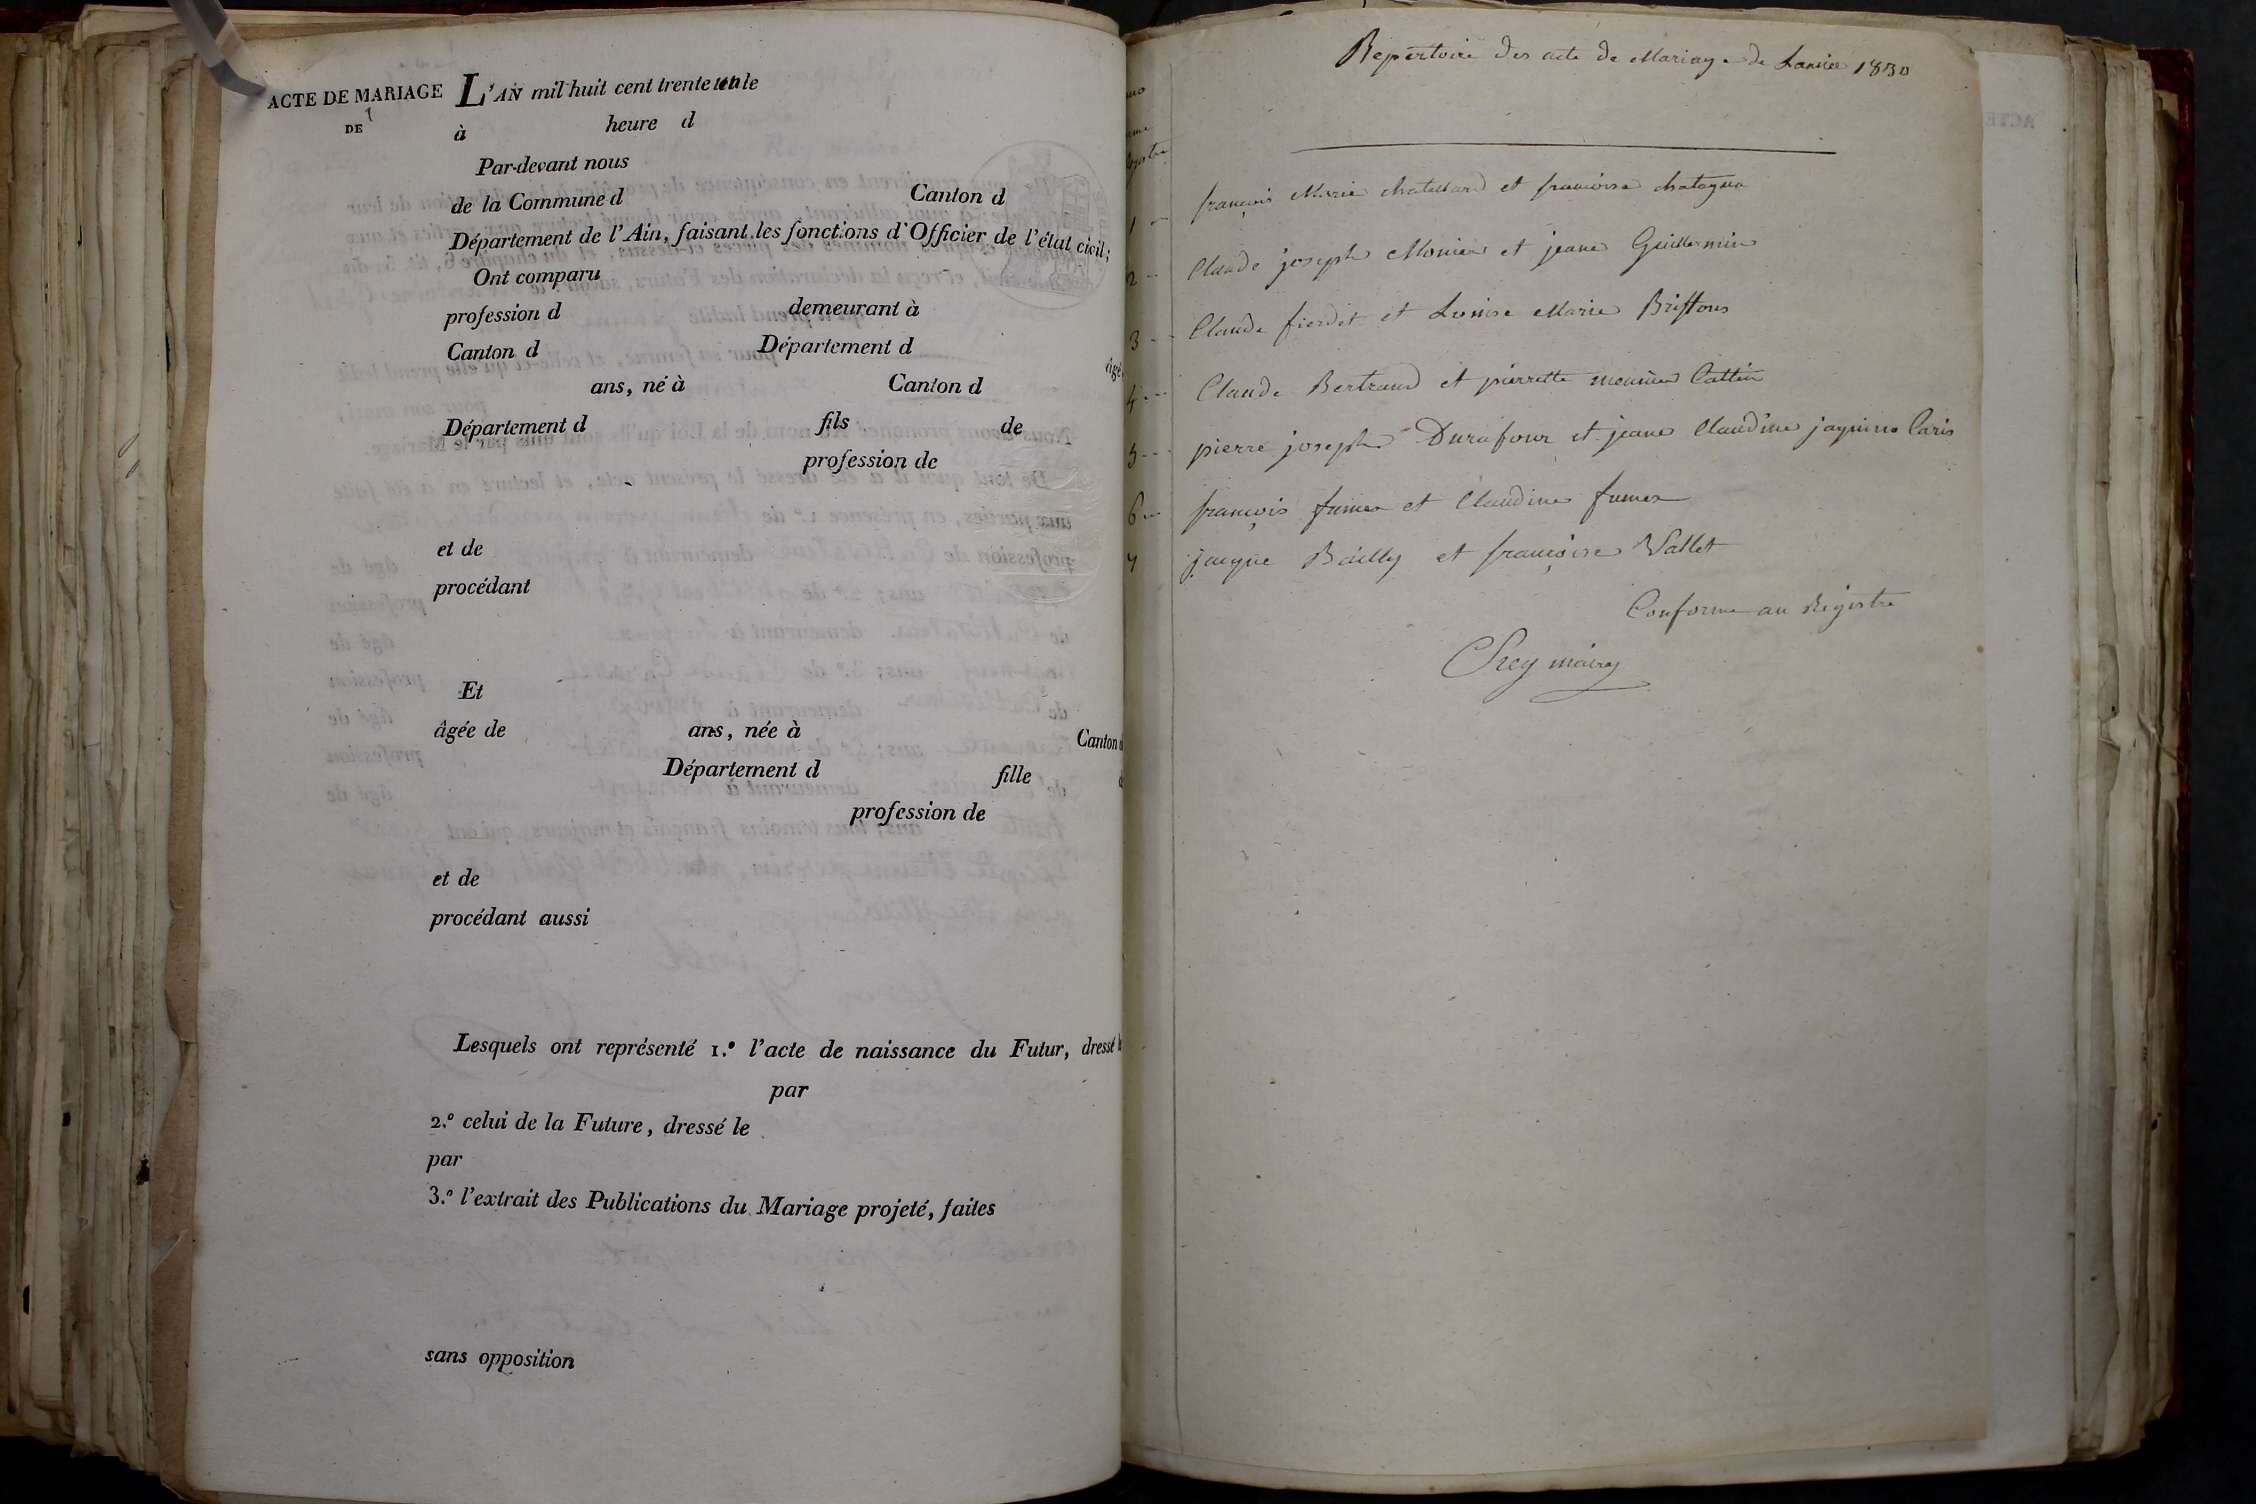 ACTE DE MARIAGE
DE
L'AN mil huit cent trente un le
à heure d
Par-devant nous
de la Commune d Canton d
Département de l'Ain, faisant les fonctions d'Officier de l'état civil;
Ont comparu
profession d demeurant à
Canton d Département d âgé
ans, né à Canton d
Département d fils de
profession de
et de
procédant
Et
âgée de ans, née à Canton d
Département d fille
profession de
et de
procédant aussi
Lesquels ont représenté 1.º l'acte de naissance du Futur, dressé
par
2.º celui de la Future, dressé le
par
3.º l'extrait des Publications du Mariage projeté, faites
sans opposition
Repertoire des acte de Mariage de Lannée 1830
1 françois Marie chatellard et françoise chatagna
2 Claude joseph Monier et jeane Guillermin
3 Claude fierdet et Louise Marie
4 Claude Bertrand et pierrette meunier Cattin
5 pierre joseph Durafour et jeane Claudine Caris
6 françois fumex et Claudine fumex
7 jaque Bailly et françoise Vallet
Conforme au Registre
Rey maire